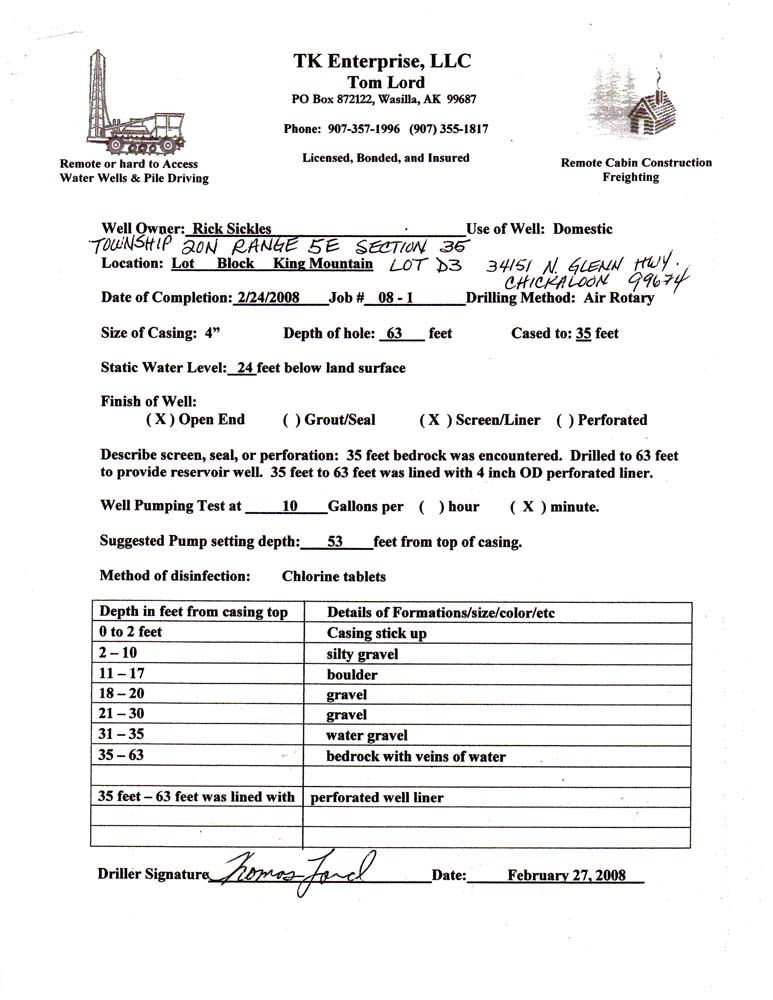 TK Enterprise, LLC
Tom Lord
PO Box 872122, Wasilla, AK 99687
Phone: 907-357-1996 (907) 355-1817
Licensed, Bonded, and Insured
Remote or hard to Access
Water Wells & Pile Driving
Remote Cabin Construction
Freighting
Well Owner: Rick Sickles Use of Well: Domestic
TOWNSHIP 20N RANGE 5E SECTION 35
Location: Lot Block King Mountain LOT D3 34151 N. GLENN HWY.
CHICKALOON 99674
Date of Completion: 2/24/2008 Job # 08 - 1 Drilling Method: Air Rotary
Size of Casing: 4” Depth of hole: 63 feet Cased to: 35 feet
Static Water Level: 24 feet below land surface
Finish of Well:
( X ) Open End ( ) Grout/Seal ( X ) Screen/Liner ( ) Perforated
Describe screen, seal, or perforation: 35 feet bedrock was encountered. Drilled to 63 feet
to provide reservoir well. 35 feet to 63 feet was lined with 4 inch OD perforated liner.
Well Pumping Test at 10 Gallons per ( ) hour ( X ) minute.
Suggested Pump setting depth: 53 feet from top of casing.
Method of disinfection: Chlorine tablets
Depth in feet from casing top Details of Formations/size/color/etc
0 to 2 feet Casing stick up
2 – 10 silty gravel
11 – 17 boulder
18 – 20 gravel
21 – 30 gravel
31 – 35 water gravel
35 – 63 bedrock with veins of water
35 feet – 63 feet was lined with perforated well liner
Driller Signature Thomas Lord Date: February 27, 2008